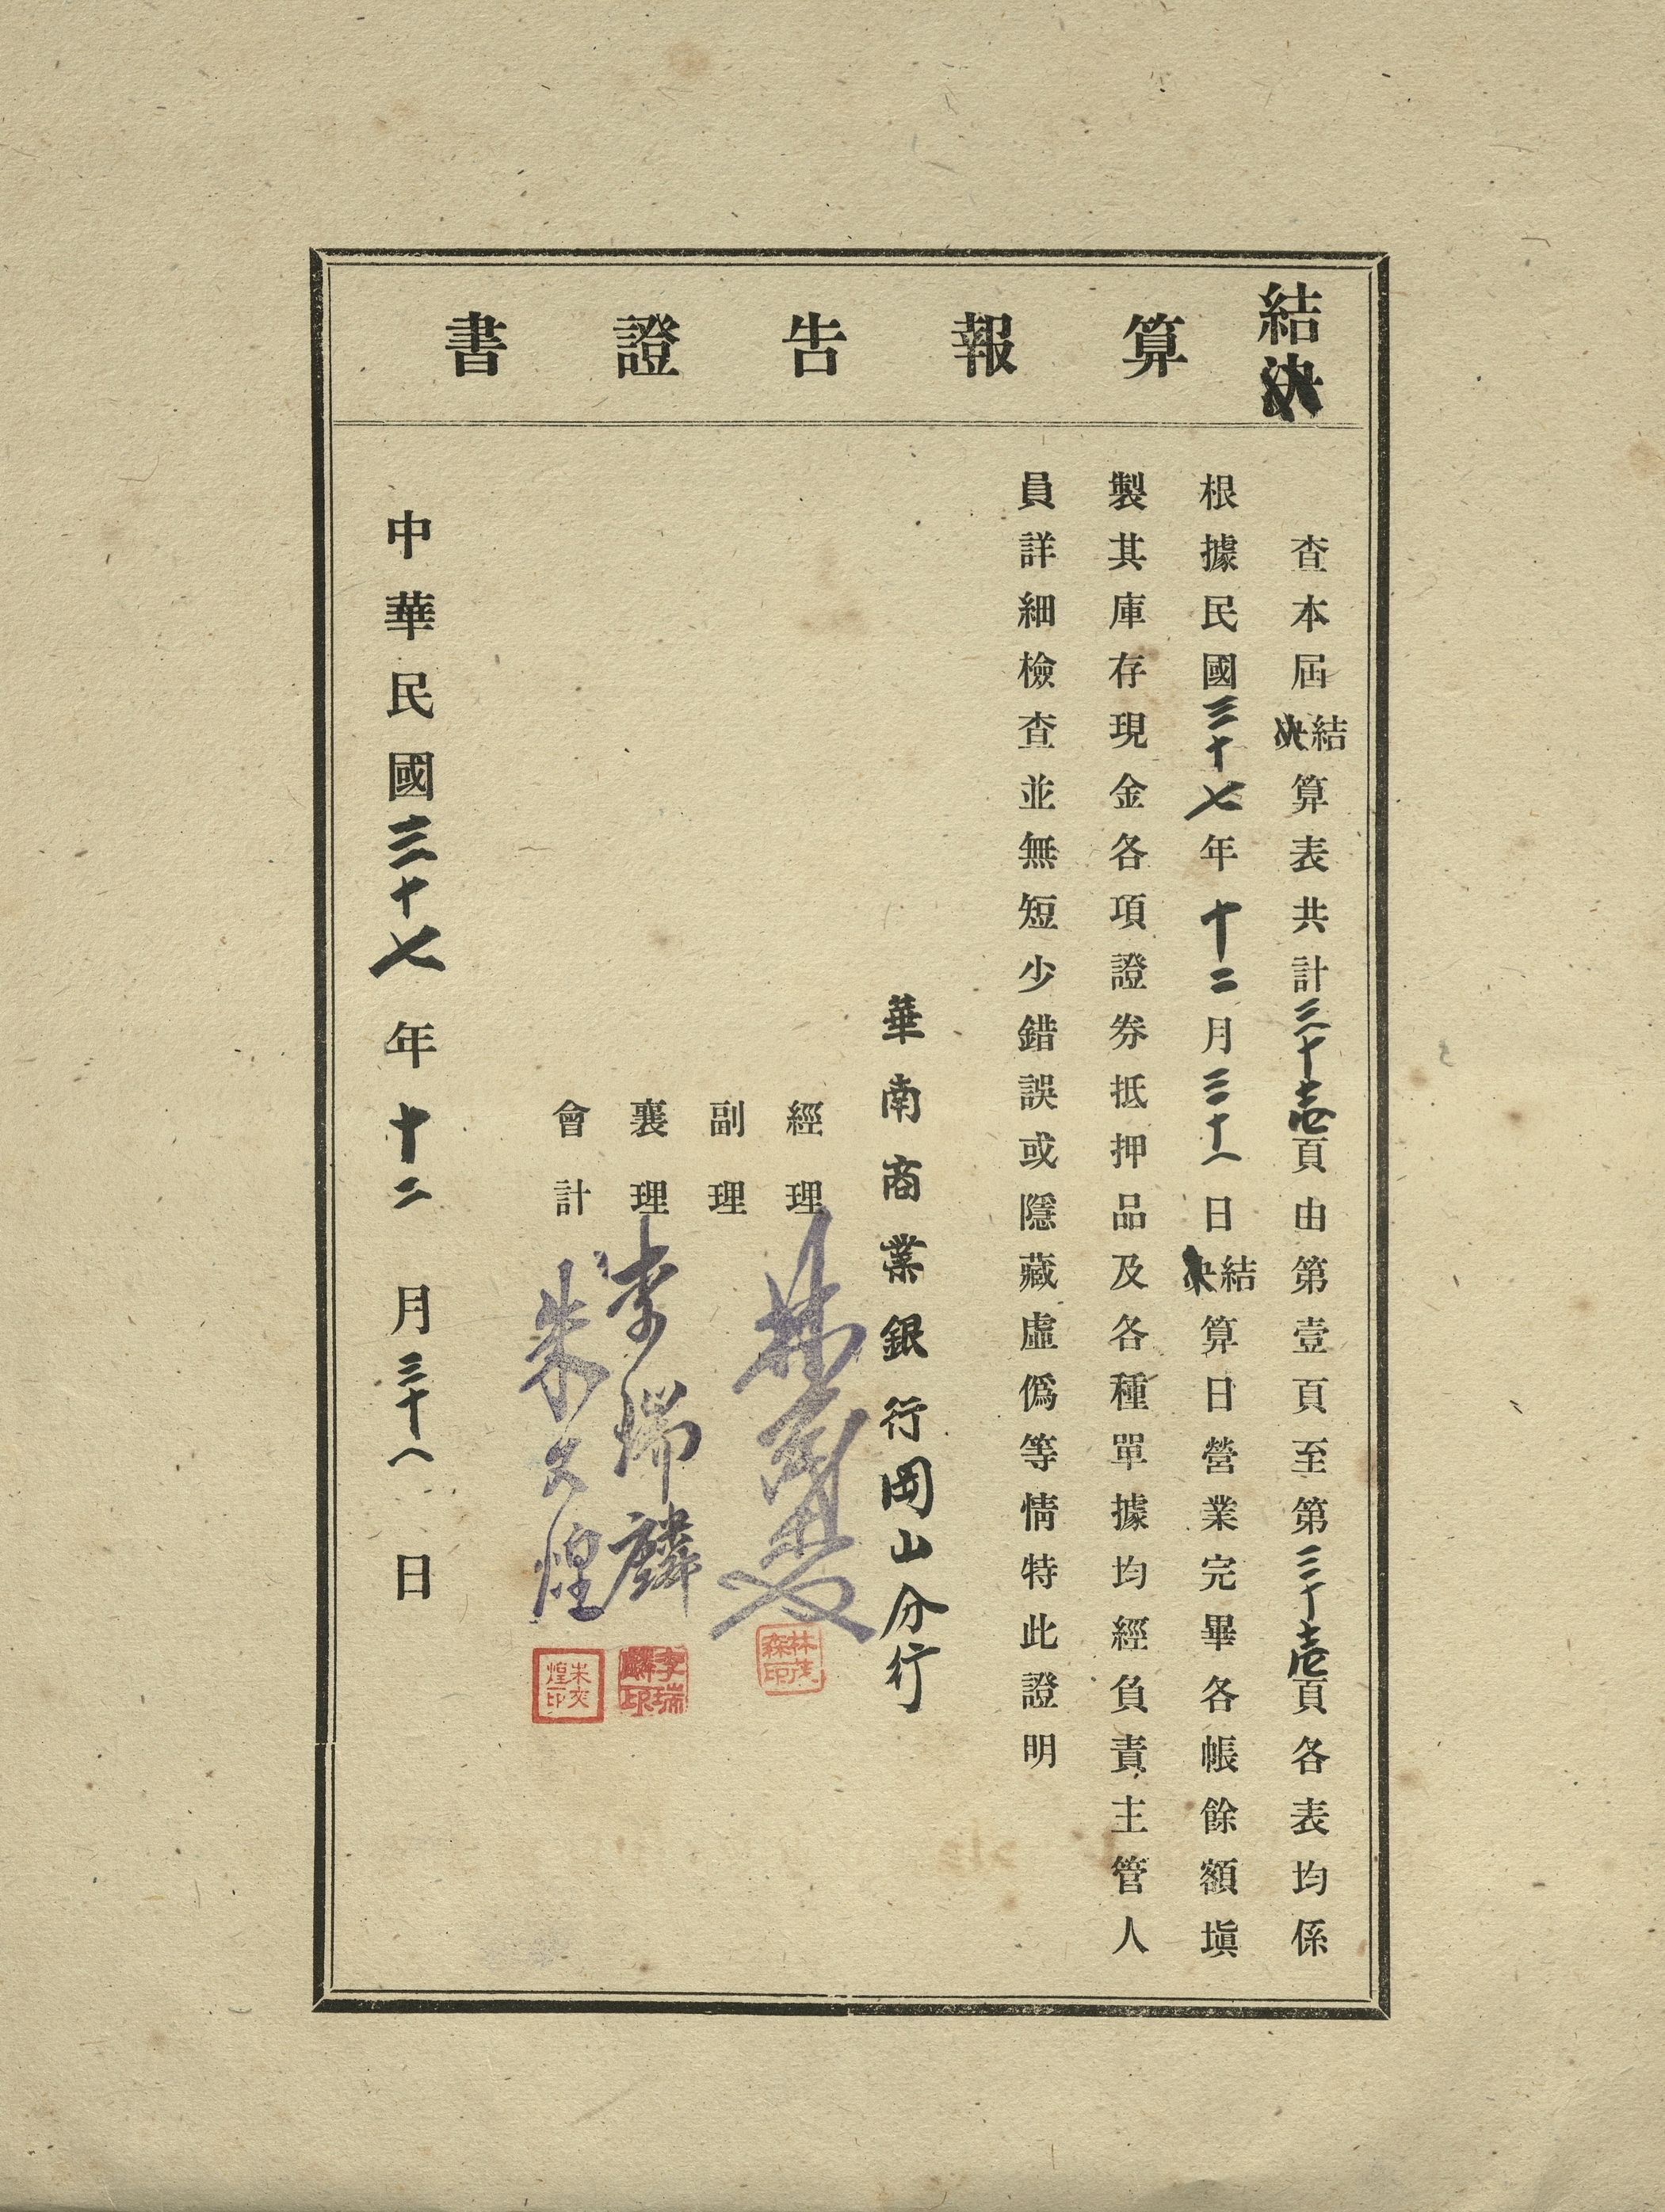 結決算報告證書
查本屆結決算表共計三十壱頁由第壹頁至第三十壱頁各表均係
根據民國三十七年十二月三十一日結決算日營業完畢各帳餘額塡
製其庫存現金各項證券抵押品及各種單據均經負責主管人
員詳細檢查並無短少錯誤或隱藏虛僞等情特此證明
華南商業銀行岡山分行
經理 林茂森
林茂森印
副理
襄理 李瑞麟
李瑞麟印
會計 朱 煌
朱 煌印
中華民國三十七年十二月三十一日